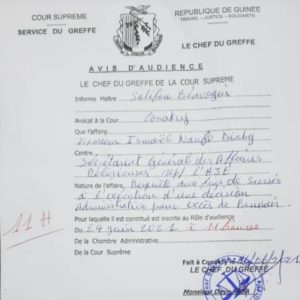 COUR SUPREME
SERVICE DU GREFFE
REPUBLIQUE DE GUINEE
TRAVAIL - JUSTICE - SOLIDARITE
LE CHEF DU GREFFE
AVIS D'AUDIENCE
LE CHEF DU GREFFE DE LA COUR SUPREME
Informe Maître Salifou Béavogui
Avocat à la Cour Conakry
Que l'affaire
Monsieur Ismaël Nanfo Diaby
Contre
Secrétariat Général des Affaires
Religieuses rep/ l'AJE
Nature de l'affaire, Requête aux fins de Sursis
à l'exécution d'une décision
Administrative pour Excès de Pouvoir
Pour laquelle il est constitué est inscrite au Rôle d'audience
11H
Du 24 juin 2021 à 11 heures
De la Chambre Administrative
De la Cour Suprême
Fait à Conakry, le
LE CHEF DU GREFFE
Monsieur